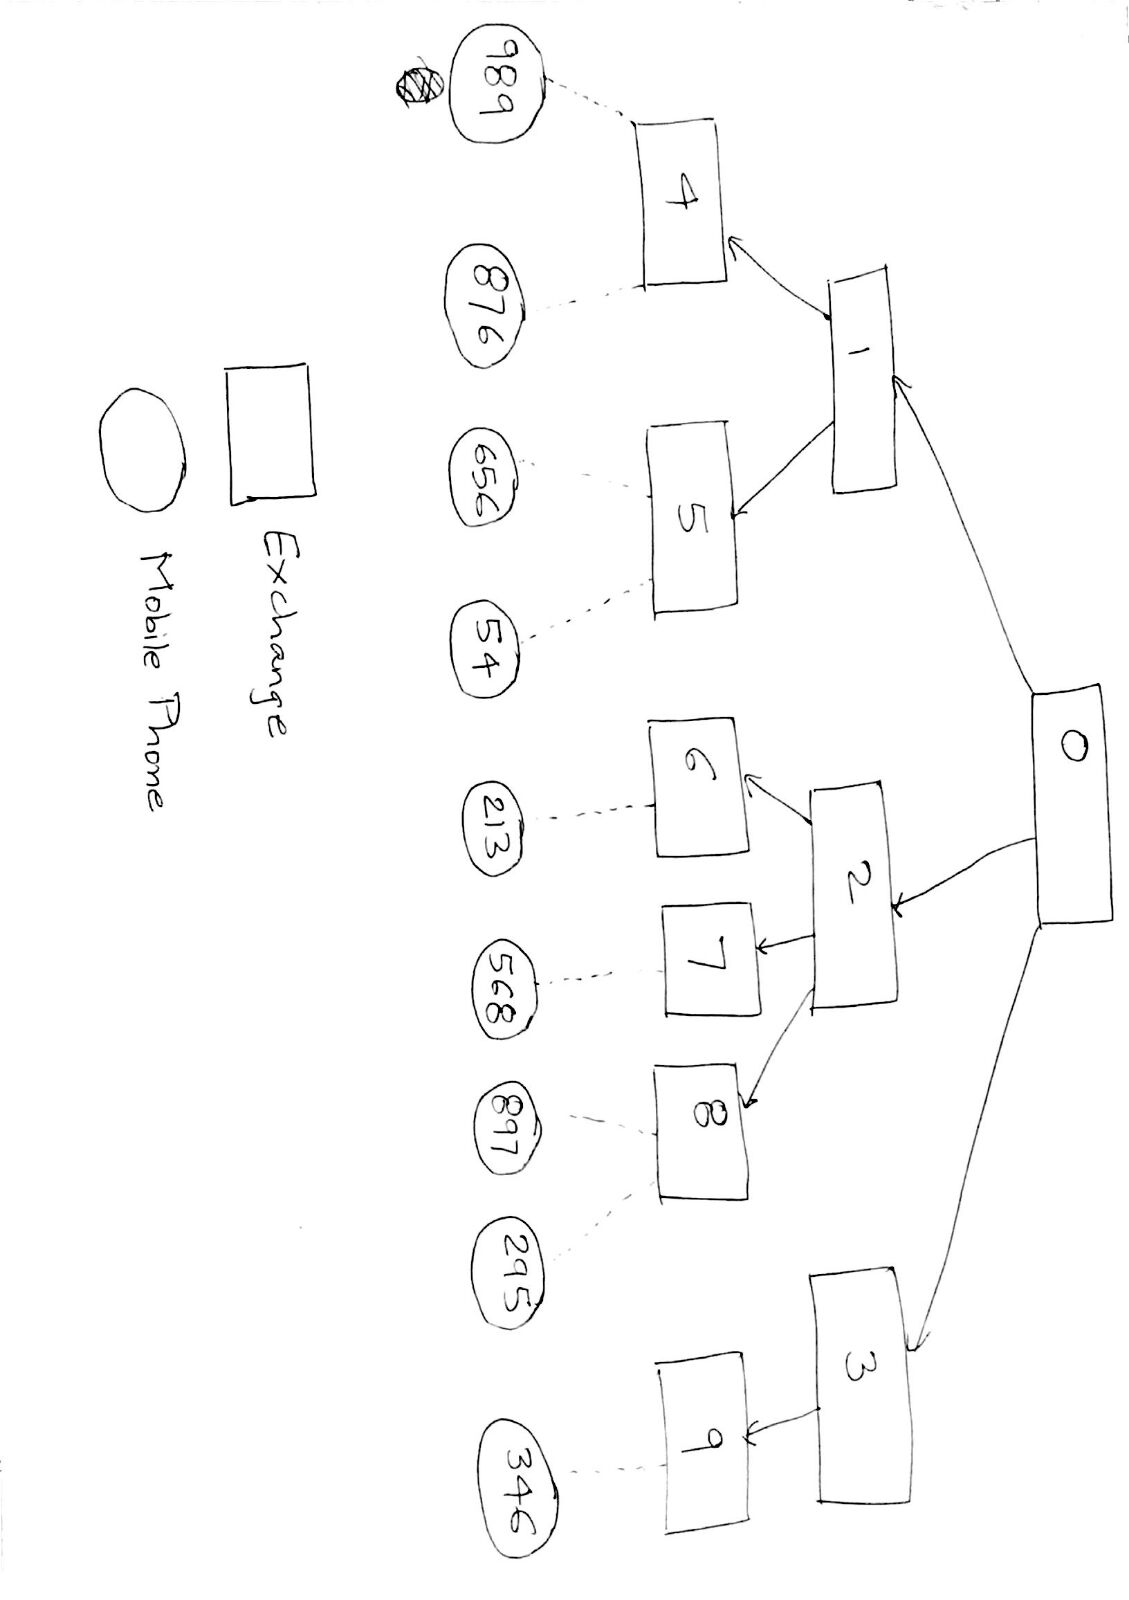 0
1 2 3
4 5 6 7 8 9
989 876 656 54 213 568 897 295 346
Exchange
Mobile Phone